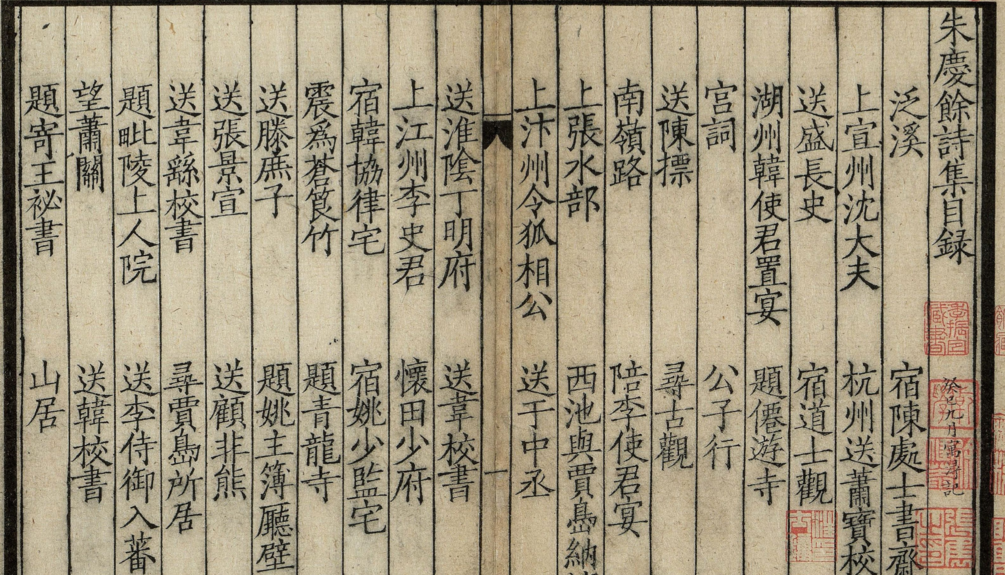 朱慶餘詩集目録
泛溪 宿陳處士書齋
上宣州沈大夫 杭州送蕭寶校
送盛長史 宿道士觀
湖州韓使君置宴 題僊遊寺
宮詞 公子行
送陳摽 尋古觀
南嶺路 陪李使君宴
上張水部 西池與賈島納
上汴州令狐相公 送于中丞
一
送淮陰丁明府 送韋校書
上江州李史君 懷田少府
宿韓協律宅 宿姚少監宅
震爲蒼筤竹 題青龍寺
送滕庶子 題姚主簿廳壁
送張景宣 送顧非熊
送韋繇校書 尋賈島所居
題毗陵上人院 送李侍御入蕃
望蕭關 送韓校書
題寄王祕書 山居